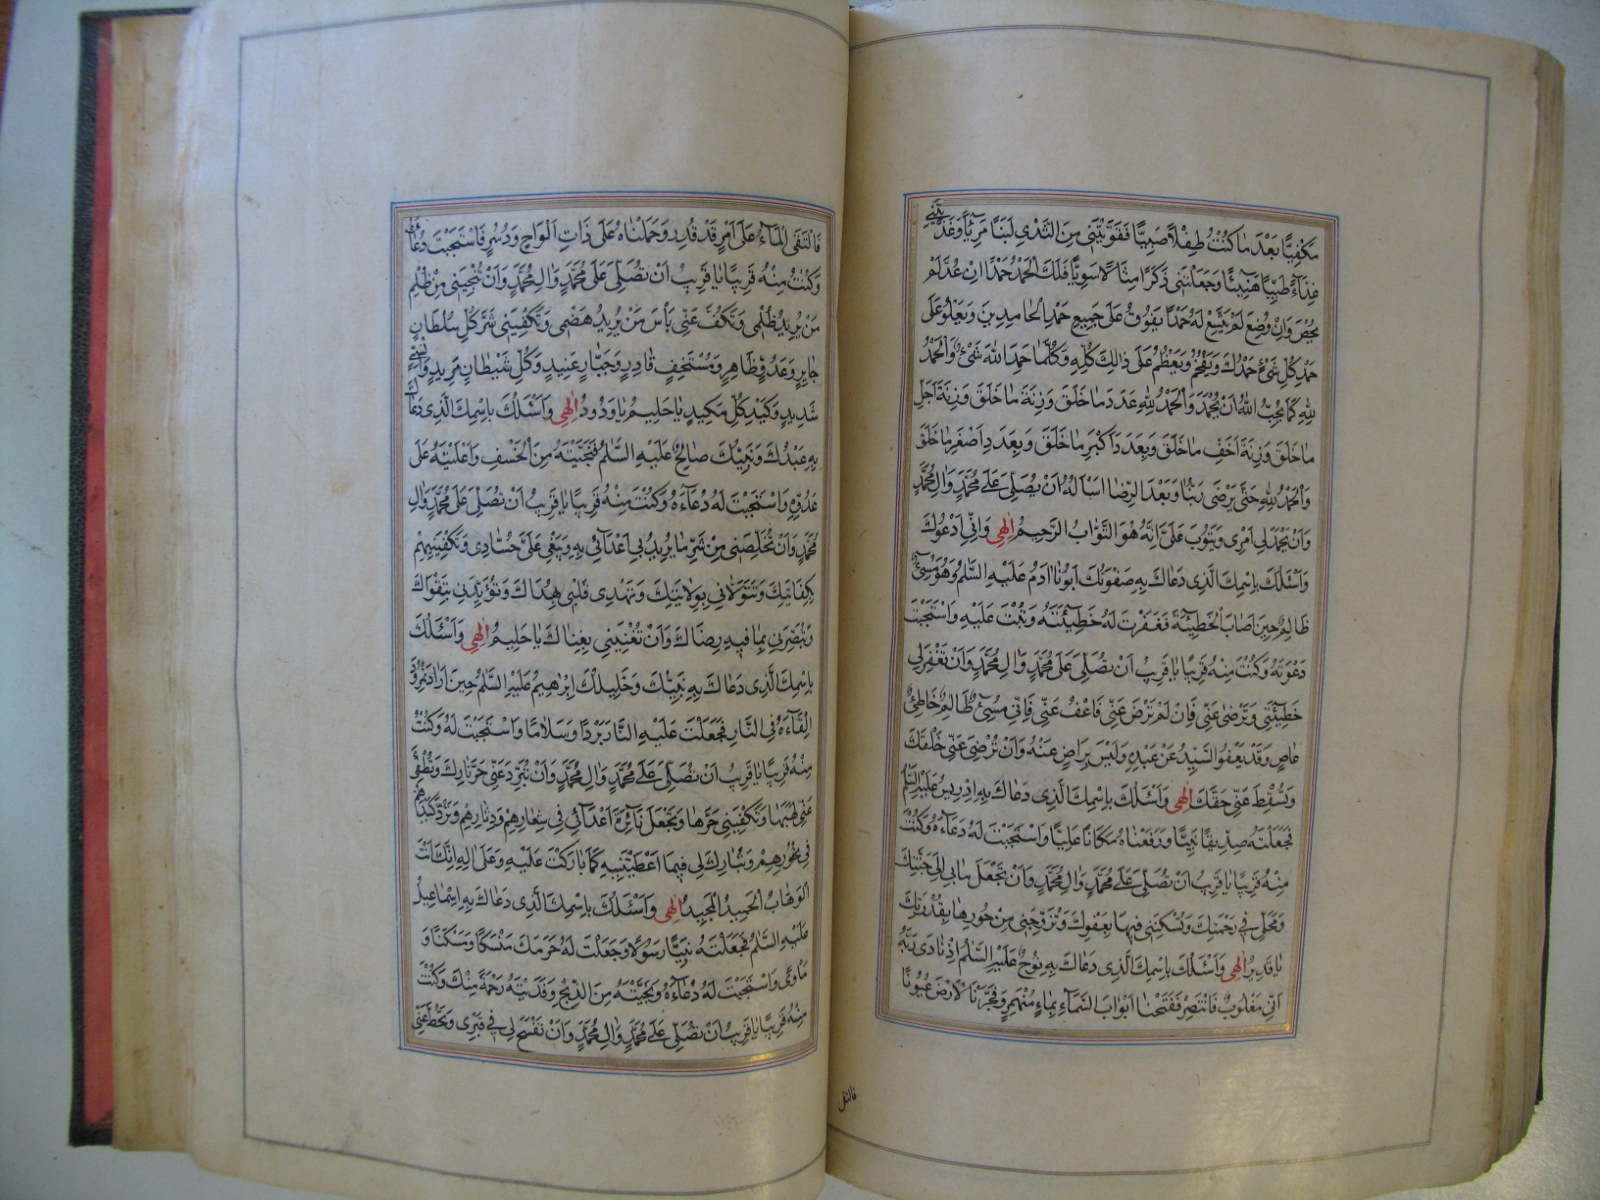 مَكْفِيًّا بَعْدَ مٰا كُنْتُ طِفْلاً صَبِيًّا فَقَوَّيْتَنِي مِنَ الثَّدْيِ لَبَنًا مَرِيئًا وَغَذَّيْتَنِي
غِذٰآءً طَيِّبًا هَنِيئًا وَجَعَلْتَنِي ذَكَرًا مِثٰالاً سَوِيًّا فَلَكَ الْحَمْدُ حَمْدًا اِنْ عُدَّ لَمْ
يُحْصَ وَاِنْ وُضِعَ لَمْ يَتَّسِعْ لَهُ حَمْدًا يَفُوقُ عَلىٰ جَمِيعِ حَمْدِ الْحٰامِدِينَ وَيَعْلُو عَلىٰ
حَمْدِ كُلِّ شَيْءٍ حَمْدُكَ وَيَفْخُمُ وَيَعْظُمُ عَلىٰ ذٰلِكَ كُلِّهِ وَكُلَّمٰا حَمِدَ اللّٰهَ شَيْءٌ وَالْحَمْدُ
لِلّٰهِ كَمٰا يُحِبُّ اللّٰهُ اَنْ يُحْمَدَ وَالْحَمْدُ لِلّٰهِ عَدَدَ مٰا خَلَقَ وَزِنَةَ مٰا خَلَقَ وَزِنَةَ اَجَلِّ
مٰا خَلَقَ وَزِنَةَ اَخَفِّ مٰا خَلَقَ وَبِعَدَدِ اَكْبَرِ مٰا خَلَقَ وَبِعَدَدِ اَصْغَرِ مٰا خَلَقَ
وَالْحَمْدُ لِلّٰهِ حَتّىٰ يَرْضىٰ رَبُّنٰا وَبَعْدَ الرِّضٰا اَسْاَلُهُ اَنْ يُصَلِّيَ عَلىٰ مُحَمَّدٍ وَاٰلِ مُحَمَّدٍ
وَاَنْ يَحْمَدَ لِي اَمْرِي وَيَتُوبَ عَلَيَّ اِنَّهُ هُوَ التَّوّٰابُ الرَّحِيمُ اِلٰهِي وَاِنِّي اَدْعُوكَ
وَاَسْئَلُكَ بِاسْمِكَ الَّذِي دَعٰاكَ بِهِ صَفْوَتُكَ اَبُونٰا اٰدَمُ عَلَيْهِ السَّلٰمُ وَهُوَ مُسِيءٌ
ظٰالِمٌ حِينَ اَصٰابَ الْخَطِيئَةَ فَغَفَرْتَ لَهُ خَطِيئَتَهُ وَتُبْتَ عَلَيْهِ وَاسْتَجَبْتَ
دَعْوَتَهُ وَكُنْتَ مِنْهُ قَرِيبًا يٰا قَرِيبُ اَنْ تُصَلِّيَ عَلىٰ مُحَمَّدٍ وَاٰلِ مُحَمَّدٍ وَاَنْ تَغْفِرَ لِي
خَطِيئَتِي وَتَرْضىٰ عَنِّي فَاِنْ لَمْ تَرْضَ عَنِّي فَاعْفُ عَنِّي فَاِنِّي مُسِيءٌ ظٰالِمٌ خٰاطِئٌ
عٰاصٍ وَقَدْ يَعْفُو السَّيِّدُ عَنْ عَبْدِهِ وَلَيْسَ بِرٰاضٍ عَنْهُ وَاَنْ تُرْضِيَ عَنِّي خَلْقَكَ
وَتُسْقِطَ عَنِّي حَقَّكَ اِلٰهِي وَاَسْئَلُكَ بِاسْمِكَ الَّذِي دَعٰاكَ بِهِ اِدْرِيسُ عَلَيْهِ السَّلٰمُ
فَجَعَلْتَهُ صِدِّيقًا نَبِيًّا وَرَفَعْنٰاهُ مَكٰانًا عَلِيًّا وَاسْتَجَبْتَ لَهُ دُعٰآءَهُ وَكُنْتَ
مِنْهُ قَرِيبًا يٰا قَرِيبُ اَنْ تُصَلِّيَ عَلىٰ مُحَمَّدٍ وَاٰلِ مُحَمَّدٍ وَاَنْ تَجْعَلَ مَاٰبِي اِلىٰ جَنَّتِكَ
وَمَحَلِّي فِي رَحْمَتِكَ وَتُسْكِنَنِي فِيهٰا بِعَفْوِكَ وَتُزَوِّجَنِي مِنْ حُورِهٰا بِقُدْرَتِكَ
يٰا قَدِيرُ اِلٰهِي وَاَسْئَلُكَ بِاسْمِكَ الَّذِي دَعٰاكَ بِهِ نُوحٌ عَلَيْهِ السَّلٰمُ اِذْ نٰادىٰ رَبَّهُ
اَنِّي مَغْلُوبٌ فَانْتَصِرْ فَفَتَحْنٰا اَبْوٰابَ السَّمٰآءِ بِمٰاءٍ مُنْهَمِرٍ وَفَجَّرْنَا الْاَرْضَ عُيُونًا
فالتقى
فَالْتَقَى الْمٰآءُ عَلىٰ اَمْرٍ قَدْ قُدِرَ وَحَمَلْنٰاهُ عَلىٰ ذٰاتِ اَلْوٰاحٍ وَدُسُرٍ فَاسْتَجَبْتَ دُعٰآءَهُ
وَكُنْتَ مِنْهُ قَرِيبًا يٰا قَرِيبُ اَنْ تُصَلِّيَ عَلىٰ مُحَمَّدٍ وَاٰلِ مُحَمَّدٍ وَاَنْ تُنْجِيَنِي مِنْ ظُلْمِ
مَنْ يُرِيدُ ظُلْمِي وَتَكُفَّ عَنِّي بَأْسَ مَنْ يُرِيدُ هَضْمِي وَتَكْفِيَنِي شَرَّ كُلِّ سُلْطٰانٍ
جٰايِرٍ وَعَدُوٍّ ظٰاهِرٍ وَمُسْتَخِفٍّ قٰادِرٍ وَجَبّٰارٍ عَنِيدٍ وَكُلِّ شَيْطٰانٍ مَرِيدٍ وَاِنْسِيٍّ
شَدِيدٍ وَكَيْدِ كُلِّ مَكِيدٍ يٰا حَلِيمُ يٰا وَدُودُ اِلٰهِي وَاَسْئَلُكَ بِاسْمِكَ الَّذِي دَعٰاكَ
بِهِ عَبْدُكَ وَنَبِيُّكَ صٰالِحٌ عَلَيْهِ السَّلٰمُ فَنَجَّيْتَهُ مِنَ الْخَسْفِ وَاَعْلَيْتَهُ عَلىٰ
عَدُوِّهِ وَاسْتَجَبْتَ لَهُ دُعٰآءَهُ وَكُنْتَ مِنْهُ قَرِيبًا يٰا قَرِيبُ اَنْ تُصَلِّيَ عَلىٰ مُحَمَّدٍ وَاٰلِ
مُحَمَّدٍ وَاَنْ تُخَلِّصَنِي مِنْ شَرِّ مٰا يُرِيدُ بِي اَعْدٰآئِي بِهِ وَيَبْغِي عَلَيَّ حُسّٰادِي وَتَكْفِيَنِيهِمْ
بِكِفٰايَتِكَ وَتَتَوَلّٰانِي بِوِلٰايَتِكَ وَتَهْدِيَ قَلْبِي بِهُدٰاكَ وَتُؤَيِّدَنِي بِتَقْوٰاكَ
وَتُبَصِّرَنِي بِمٰا فِيهِ رِضٰاكَ وَاَنْ تُغْنِيَنِي بِغِنٰاكَ يٰا حَلِيمُ اِلٰهِي وَاَسْئَلُكَ
بِاسْمِكَ الَّذِي دَعٰاكَ بِهِ نَبِيُّكَ وَخَلِيلُكَ اِبْرٰهِيمُ عَلَيْهِ السَّلٰمُ حِينَ اَرٰادَ نَمْرُودُ
اِلْقٰآءَهُ فِي النّٰارِ فَجَعَلْتَ عَلَيْهِ النّٰارَ بَرْدًا وَسَلٰامًا وَاسْتَجَبْتَ لَهُ وَكُنْتَ
مِنْهُ قَرِيبًا يٰا قَرِيبُ اَنْ تُصَلِّيَ عَلىٰ مُحَمَّدٍ وَاٰلِ مُحَمَّدٍ وَاَنْ تُبَرِّدَ عَنِّي حَرَّ نٰارِكَ وَتُطْفِئَ
عَنِّي لَهَبَهٰا وَتَكْفِيَنِي حَرَّهٰا وَتَجْعَلَ نٰائِرَةَ اَعْدٰآئِي فِي شِعٰارِهِمْ وَدِثٰارِهِمْ وَتَرُدَّ كَيْدَهُمْ
فِي نُحُورِهِمْ وَتُبٰارِكَ لِي فِيمٰا اَعْطَيْتَنِيهِ كَمٰا بٰارَكْتَ عَلَيْهِ وَعَلىٰ اٰلِهِ اِنَّكَ اَنْتَ
الْوَهّٰابُ الْحَمِيدُ الْمَجِيدُ اِلٰهِي وَاَسْئَلُكَ بِاسْمِكَ الَّذِي دَعٰاكَ بِهِ اِسْمٰاعِيلُ
عَلَيْهِ السَّلٰمُ فَجَعَلْتَهُ نَبِيًّا رَسُولاً وَجَعَلْتَ لَهُ حَرَمَكَ مَنْسَكًا وَمَسْكَنًا وَ
مَأْوىً وَاسْتَجَبْتَ لَهُ دُعٰآءَهُ وَنَجَّيْتَهُ مِنَ الذَّبْحِ وَفَدَيْتَهُ رَحْمَةً مِنْكَ وَكُنْتَ
مِنْهُ قَرِيبًا يٰا قَرِيبُ اَنْ تُصَلِّيَ عَلىٰ مُحَمَّدٍ وَاٰلِ مُحَمَّدٍ وَاَنْ تَفْسَحَ لِي فِي قَبْرِي وَتَحُطَّ عَنِّي